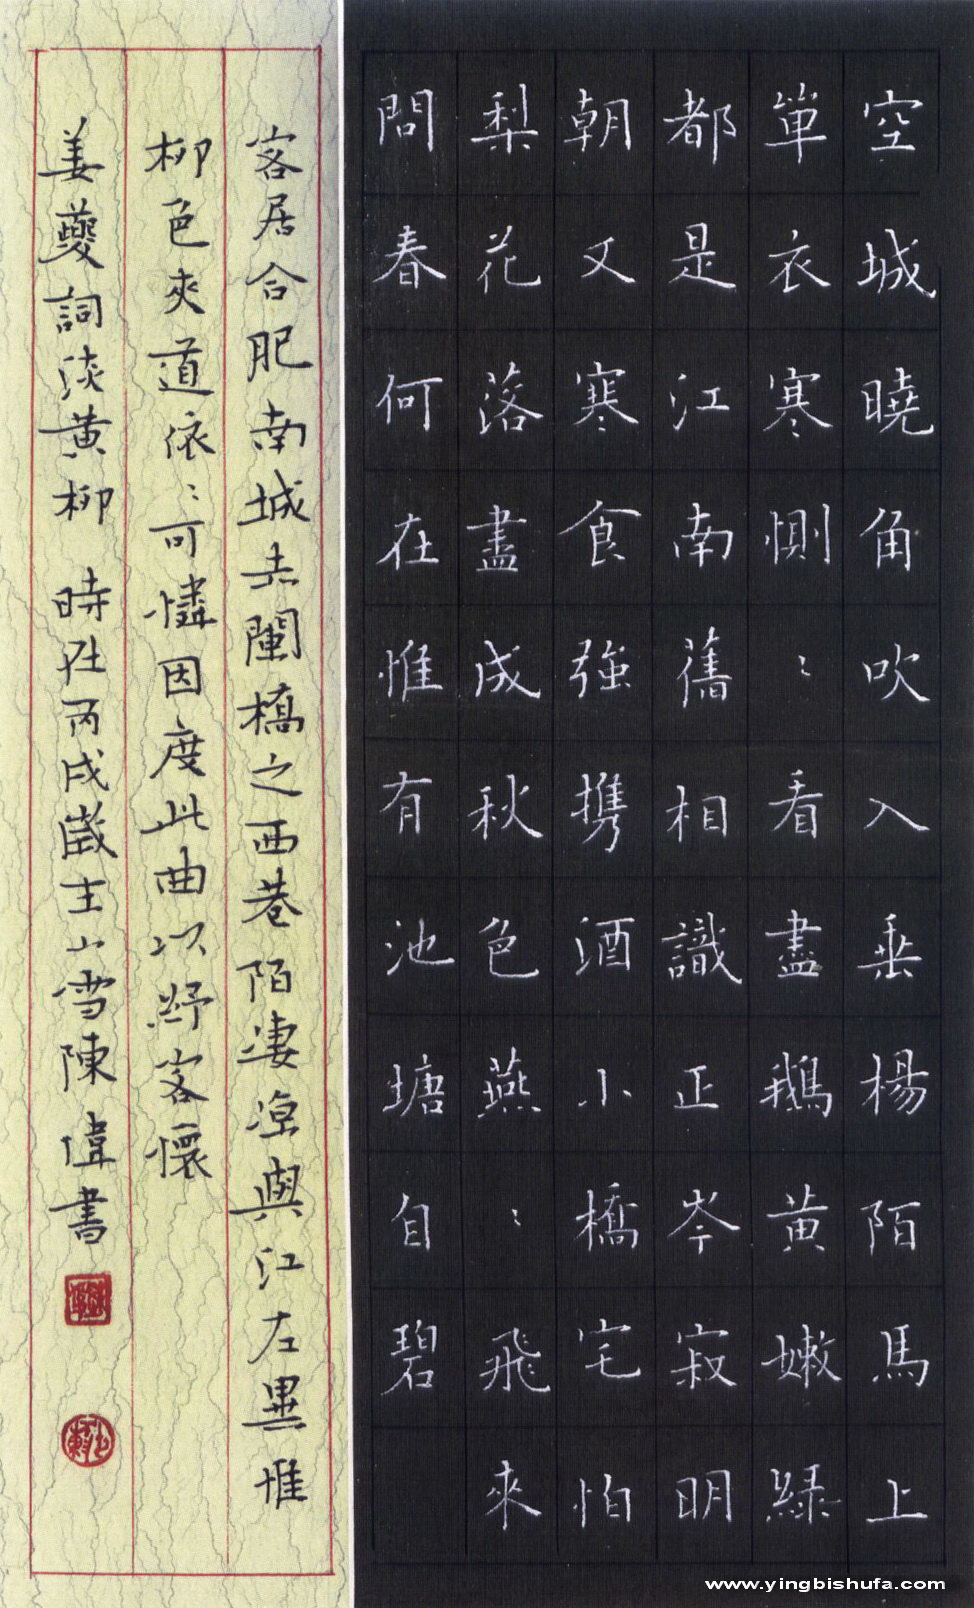 空城曉角吹入垂楊陌馬上
單衣寒惻〻看盡鵝黃嫩綠
都是江南舊相識正岑寂明
朝又寒食強携酒小橋宅怕
梨花落盡成秋色燕〻飛來
問春何在惟有池塘自碧
客居合肥南城赤闌橋之西巷陌淒涼與江左異惟
柳色夾道依〻可憐因度此曲以紓客懷
姜夔詞淡黃柳 時在丙戌歲主山雪陳偉書
www.yingbishufa.com